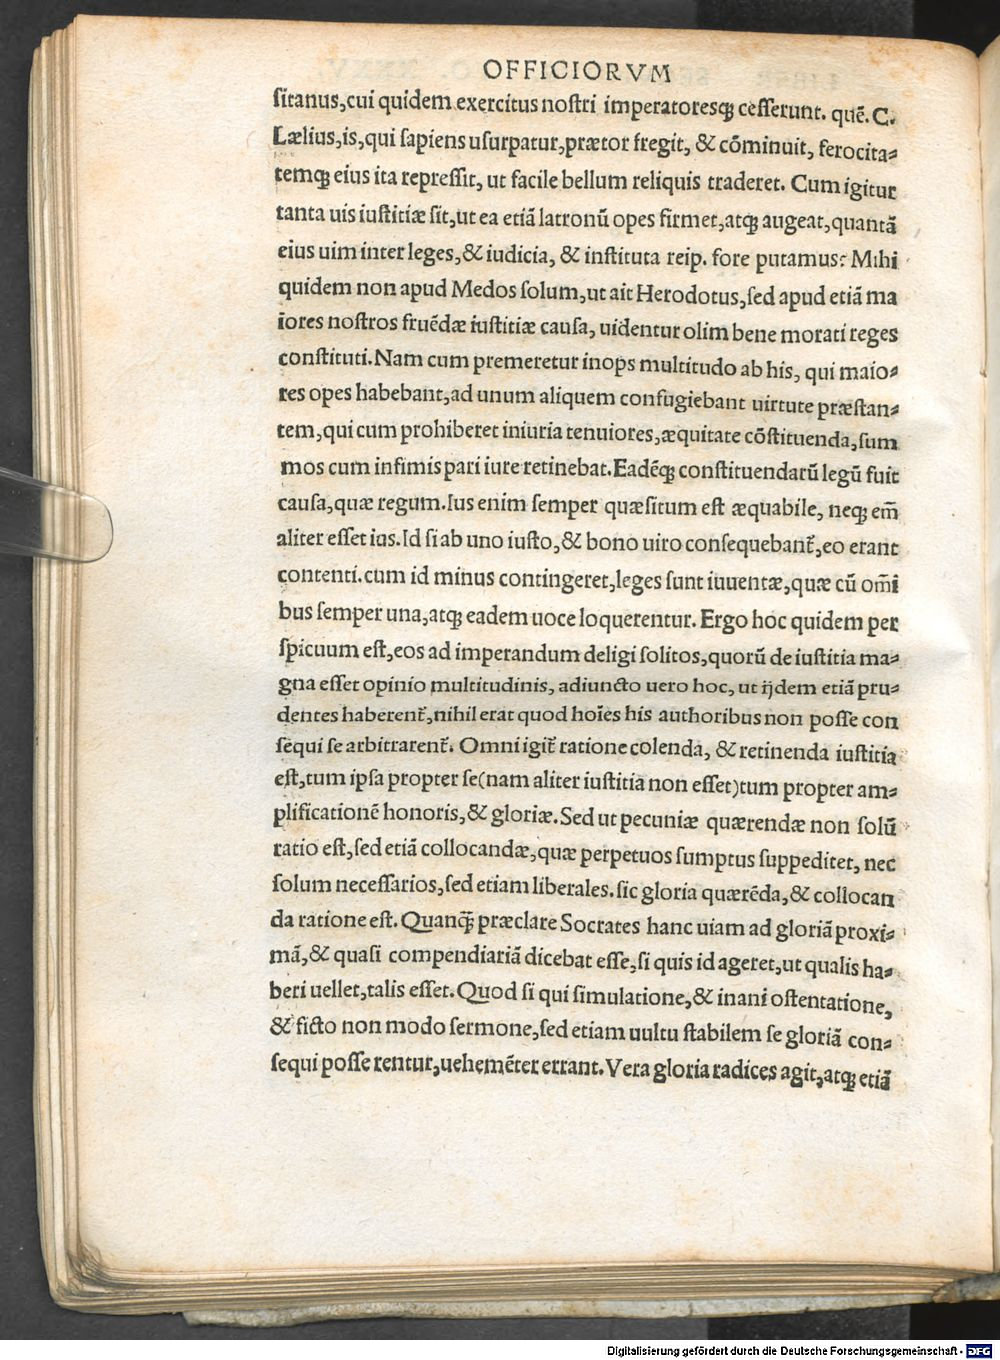 OFFICIORVM
sitanus,cui quidem exercitus nostri imperatoresq; cesserunt. quē. C.
Lælius,is,qui sapiens usurpatur,prætor fregit, & cōminuit, ferocita-
temq; eius ita repressit, ut facile bellum reliquis traderet. Cum igitur
tanta uis iustitiæ sit,ut ea etiā latronū opes firmet,atq; augeat,quantā
eius uim inter leges,& iudicia, & instituta reip. fore putamus? Mihi
quidem non apud Medos solum,ut ait Herodotus,sed apud etiā ma
iores nostros fruēdæ iustitiæ causa, uidentur olim bene morati reges
constituti.Nam cum premeretur inops multitudo ab his, qui maio-
res opes habebant,ad unum aliquem confugiebant uirtute præstan-
tem,qui cum prohiberet iniuria tenuiores,æquitate cōstituenda,sum
mos cum infimis pari iure retinebat.Eadēq; constituendarū legū fuit
causa,quæ regum.Ius enim semper quæsitum est æquabile, neq; em̄
aliter esset ius.Id si ab uno iusto,& bono uiro consequebant̄,eo erant
contenti.cum id minus contingeret,leges sunt iuuentæ,quæ cū om̄i
bus semper una,atq; eadem uoce loquerentur. Ergo hoc quidem per
spicuum est,eos ad imperandum deligi solitos,quorū de iustitia ma-
gna esset opinio multitudinis, adiuncto uero hoc, ut ijdem etiā pru-
dentes haberent̄,nihil erat quod hoīes his authoribus non posse con
sequi se arbitrarent̄. Omni igit̄ ratione colenda, & retinenda iustitia
est,tum ipsa propter se(nam aliter iustitia non esset)tum propter am-
plificationē honoris,& gloriæ.Sed ut pecuniæ quærendæ non solū
ratio est,sed etiā collocandæ,quæ perpetuos sumptus suppeditet, nec
solum necessarios,sed etiam liberales.sic gloria quærēda,& collocan
da ratione est. Quanq̄; præclare Socrates hanc uiam ad gloriā proxi-
mā,& quasi compendiariā dicebat esse,si quis id ageret,ut qualis ha-
beri uellet,talis esset.Quod si qui simulatione,& inani ostentatione,
& ficto non modo sermone,sed etiam uultu stabilem se gloriā con-
sequi posse rentur,uehemēter errant.Vera gloria radices agit,atq; etiā
Digitalisierung gefördert durch die Deutsche Forschungsgemeinschaft - DFG